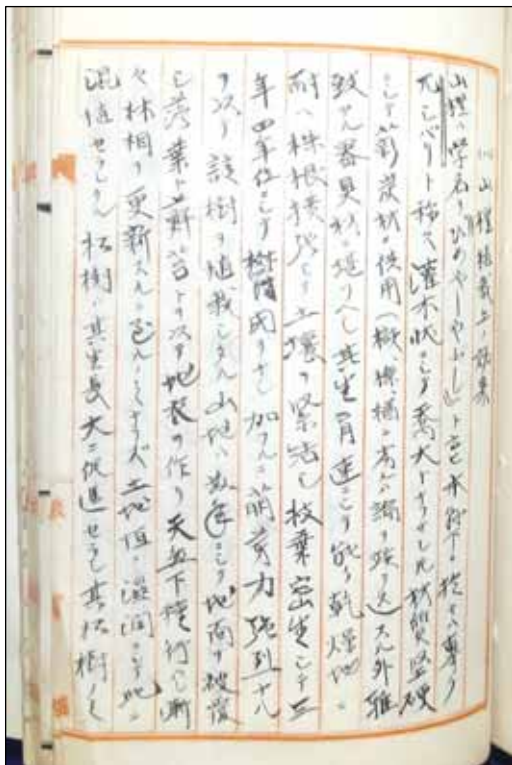 山櫨植栽上ノ効果
山櫨ハ学名ヲひめやしやぶしト云ヒ木管下ニ於テハ専ラ
ハシバリト称ス灌木状ニシテ喬大トナラザレ共材質堅硬
ニシテ薪炭材ニ使用 スル外雅
致アル器具材ニ堪ヘシ其生育速ニシテ能ク乾燥地ニ
耐ヘ株根横張シテ土壌ヲ緊結シ枝葉密生シテ三
年四年位ニシテ樹間閉ヲナシ加フルニ萌芽力強烈ナル
ヲ以テ該樹ヲ植栽シタル山地ハ数年ニシテ地面ヲ被覆
シ落葉ト蘚苔トヲ以テ地衣ヲ作リ天然下種行ハレ漸
々林相ヲ更新スルニ至ル ノミナラズ土地恒ニ湿潤ニシテ
混植セラレタル松樹ハ其生長大ニ促進セラレ其松樹ノミ